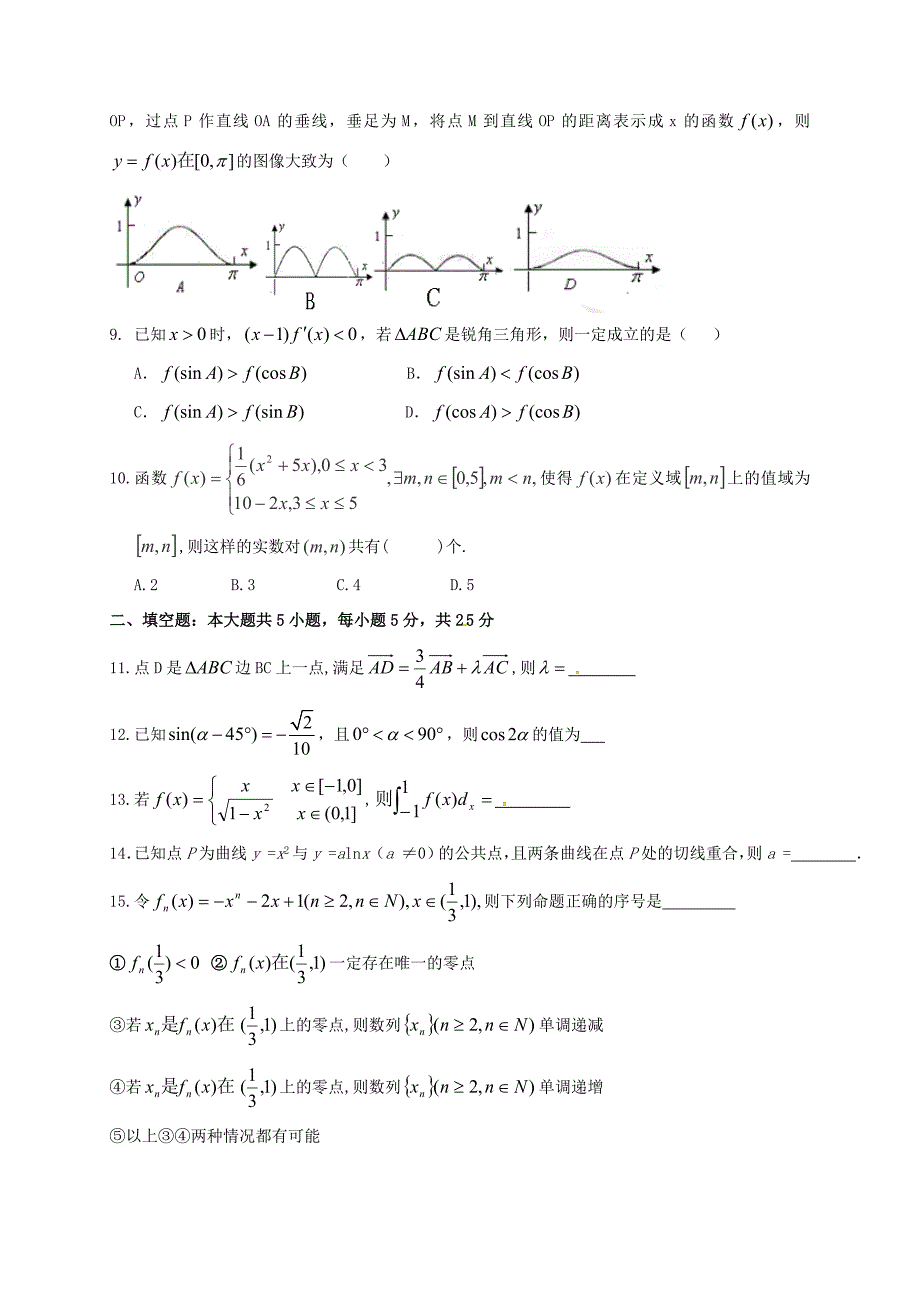 OP，过点 P 作直线 OA 的垂线，垂足为 M，将点 M 到直线 OP 的距离表示成 x 的函数 f(x)，则
y = f(x)在[0,π]的图像大致为（　　）
y 1 O x π A
1 π B
y 1 x π C
y 1 x π D
9. 已知 x > 0 时，(x−1)f′(x) < 0，若 ΔABC 是锐角三角形，则一定成立的是（　　）
A．f(sin A) > f(cos B)　　B．f(sin A) < f(cos B)
C．f(sin A) > f(sin B)　　D．f(cos A) > f(cos B)
10.函数 f(x) = { 1/6(x²+5x),0≤x<3 ; 10−2x,3≤x≤5 ,∃m,n∈[0,5],m<n, 使得 f(x) 在定义域[m,n]上的值域为
[m,n],则这样的实数对(m,n)共有(　　)个.
A.2　　B.3　　C.4　　D.5
二、填空题：本大题共 5 小题，每小题 5 分，共 25 分
11.点 D 是 ΔABC 边 BC 上一点,满足 AD = 3/4 AB + λAC ,则 λ = ________
12.已知 sin(α−45°) = −√2/10，且 0°<α<90°，则 cos2α 的值为___
13.若 f(x) = { x　x∈[−1,0] ; √1−x²　x∈(0,1] , 则∫_{−1}^{1} f(x)dₓ = _________
14.已知点 P 为曲线 y =x² 与 y =alnx（a ≠0）的公共点,且两条曲线在点 P 处的切线重合,则 a =________.
15.令 fₙ(x) = −xⁿ − 2x + 1(n≥2,n∈N), x∈(1/3,1), 则下列命题正确的序号是_________
① fₙ(1/3)<0 ② fₙ(x)在(1/3,1)一定存在唯一的零点
③若 xₙ是fₙ(x)在 (1/3,1)上的零点,则数列{xₙ}(n≥2,n∈N)单调递减
④若 xₙ是fₙ(x)在 (1/3,1)上的零点,则数列{xₙ}(n≥2,n∈N)单调递增
⑤以上③④两种情况都有可能